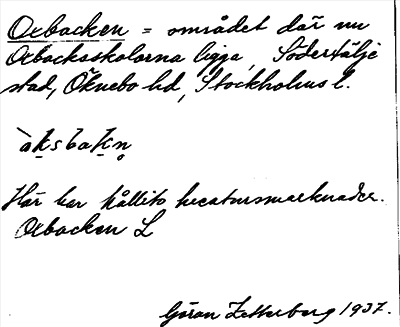 Oxbacken = området där nu
Oxbacksskolorna ligga, Södertälje
stad, Öknebo hd, Stockholms l.
`ak̬sbak̬n̥
Här har hållits kreatursmarknader.
Oxbacken L
Göran Zetterberg 1937.